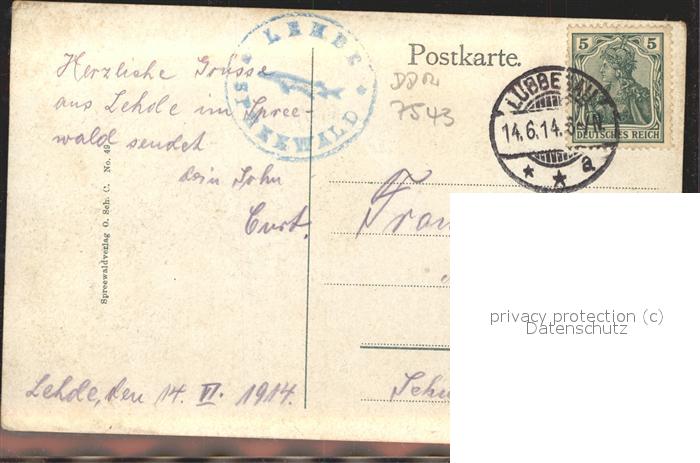 Postkarte.
5 5
DEUTSCHES REICH
LÜBBENAU
14.6.14.
a
LEHDE
SPREEWALD
DDR
7543
Herzliche Grüsse
aus Lehde im Spree-
wald sendet
dein Sohn
Curt.
Spreewaldverlag O. Sch. C. No. 49
Lehde, den 14. VI. 1914.
Frau
privacy protection (c)
Datenschutz